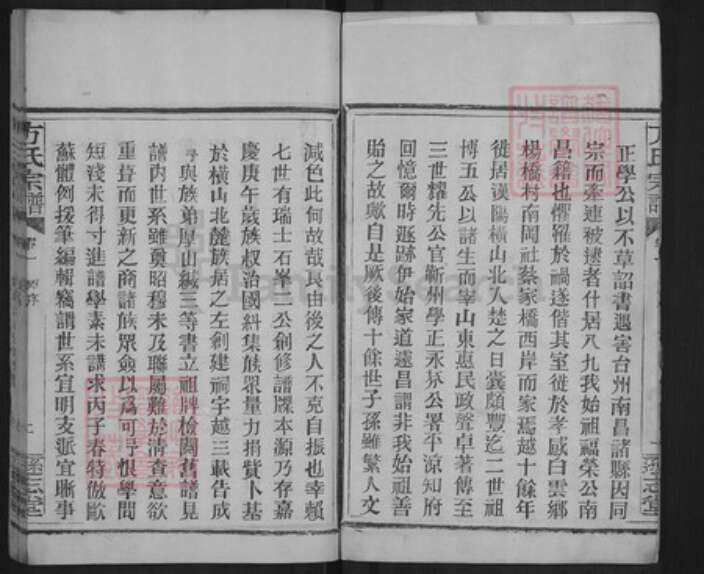 正學公以不草詔書遇害台州南昌諸縣因同
宗而牽連被逮者什居八九我始祖福榮公南
昌籍也懼罹於禍遂偕其室徙於孝感白雲鄉
楊橋村南岡社蔡家橋西岸而家焉越十餘年
徙居漢陽橫山北入楚之日囊頗豐迄二世祖
博五公以諸生而宰山東惠民政聲卓著傳至
三世耀先公官蘄州學正永芬公署平涼知府
回憶爾時遯跡伊始家道遂昌謂非我始祖善
貽之故歟自是厥後傳十餘世子孫雖繁人文
減色此何故哉良由後之人不克自振也幸賴
七世有瑞士石峯二公創修譜牒本源乃存嘉
慶庚午歲族叔治國糾集族眾量力捐貲卜基
於橫山北麓族居之左創建祠宇越三載告成
予與族弟厚山緘三等書立祖牌檢閱舊譜見
譜内世系雖奠昭穆未及聯屬難於清查意欲
重葺而更新之商諸族眾僉以為可予恨學問
短淺未得寸進譜學素未講求丙子春特倣歐
蘇體例援筆編輯竊謂世系宜明支派宜晰事
方氏宗譜
方氏宗譜
遜志堂
遜志堂